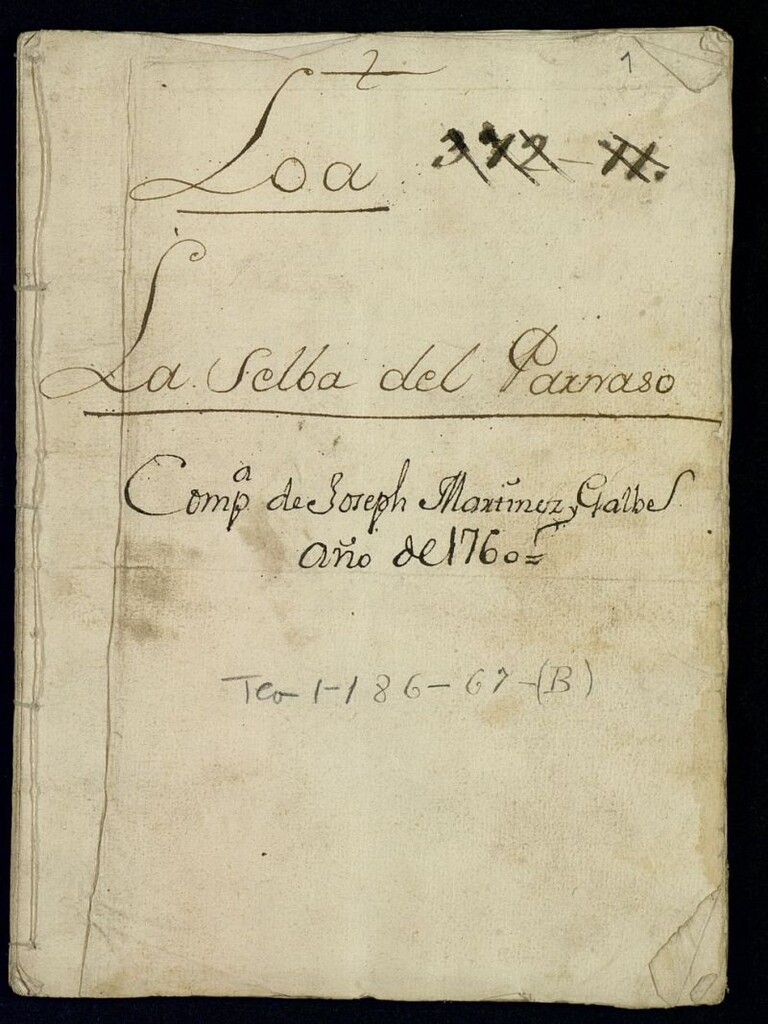 1
Loa 372-11.
La Selba del Parnaso
Comp.ª de Joseph Martinez y Galbes
Año de 1760=
Tea 1-186-67-(B)